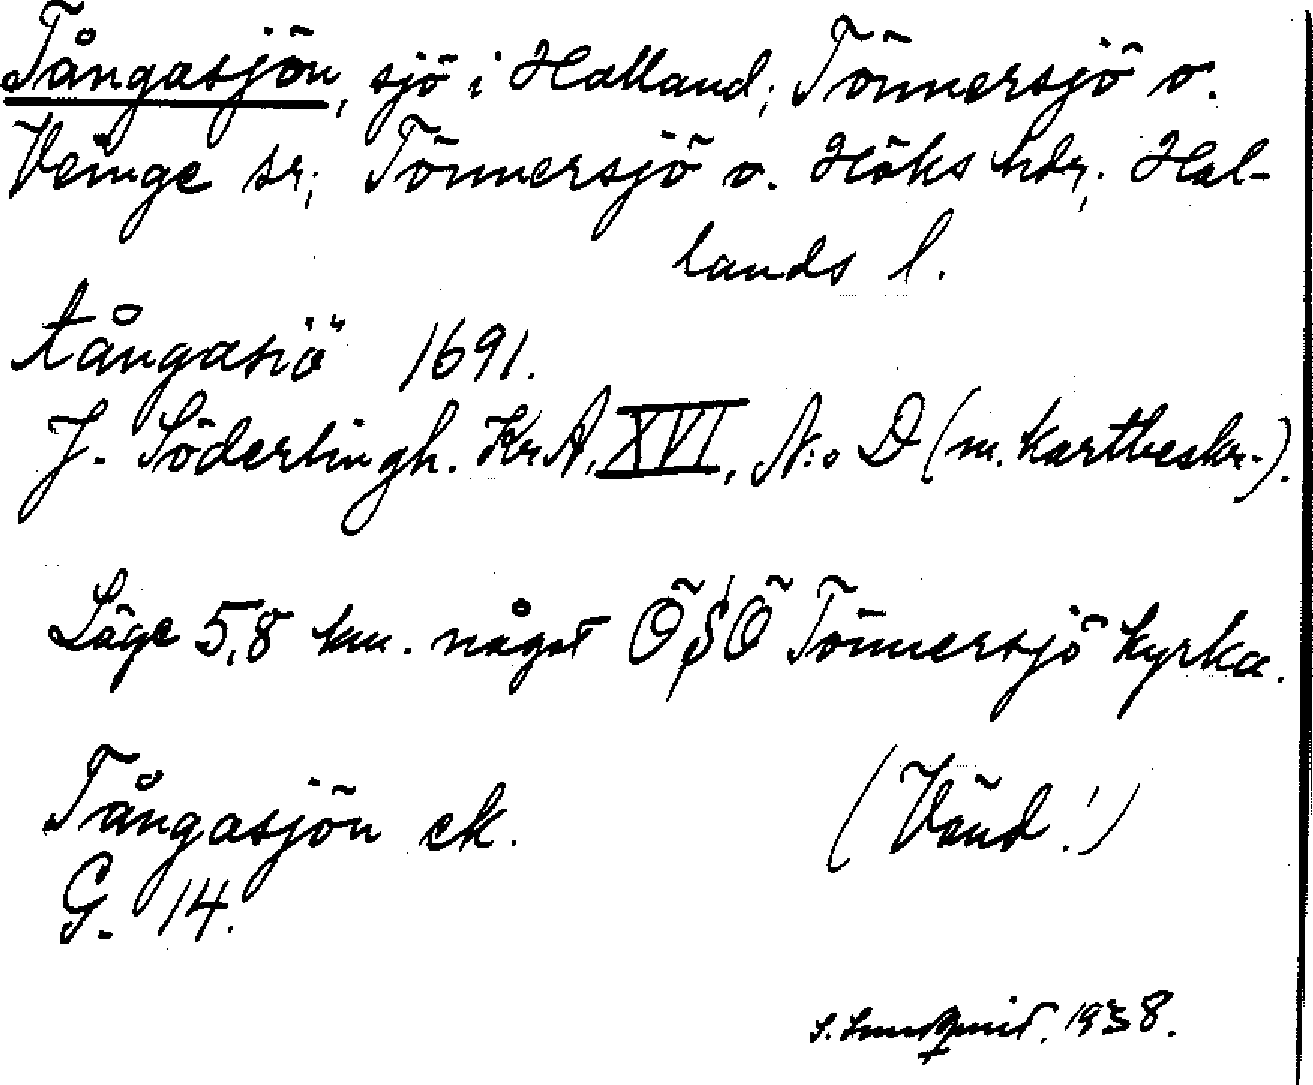 Tångasjön, sjö i Halland; Tönnersjö o.
Veinge sr; Tönnersjö o. Höks hdr; Hal-
lands l.
tångasiö 1691.
J. Söderlingh. KrA, XVI, N:o D (m. kartbeskr.).
Läge 5,8 km. något ÖSÖ Tönnersjö kyrka.
Tångasjön ek.
(Vänd!)
G. 14.
S. Lundqvist. 1938.